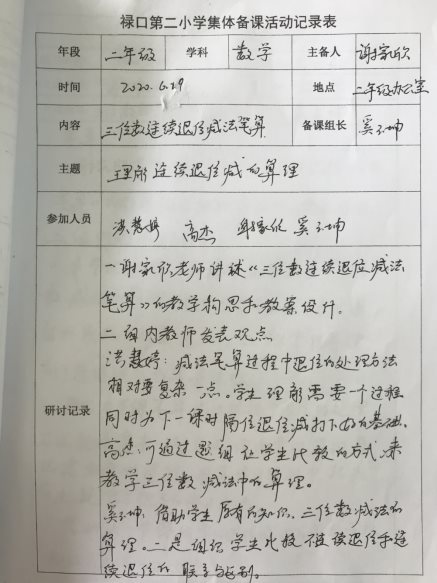 禄口第二小学集体备课活动记录表
年段 二年级 学科 数学 主备人 谢家欣
时间 2020.6.29 地点 二年级办公室
内容 三位数连续退位减法笔算 备课组长 奚小坤
主题 理解连续退位减的算理
参加人员 洪慧婷 高杰 谢家欣 奚小坤
研讨记录
一.谢家欣老师讲述《三位数连续退位减法
笔算》的教学构思和教案设计。
二.组内教师发表观点
洪慧婷:减法笔算过程中退位的处理方法
相对要复杂一点。学生理解需要一个过程
同时为下一课时隔位退位减打下好的基础。
高杰:可通过题组让学生比较的方式来
教学三位数减法中的算理。
奚小坤:借助学生原有的知识,三位数减法的
算理。二是组织学生比较不连续退位和连
续退位的联系与区别。